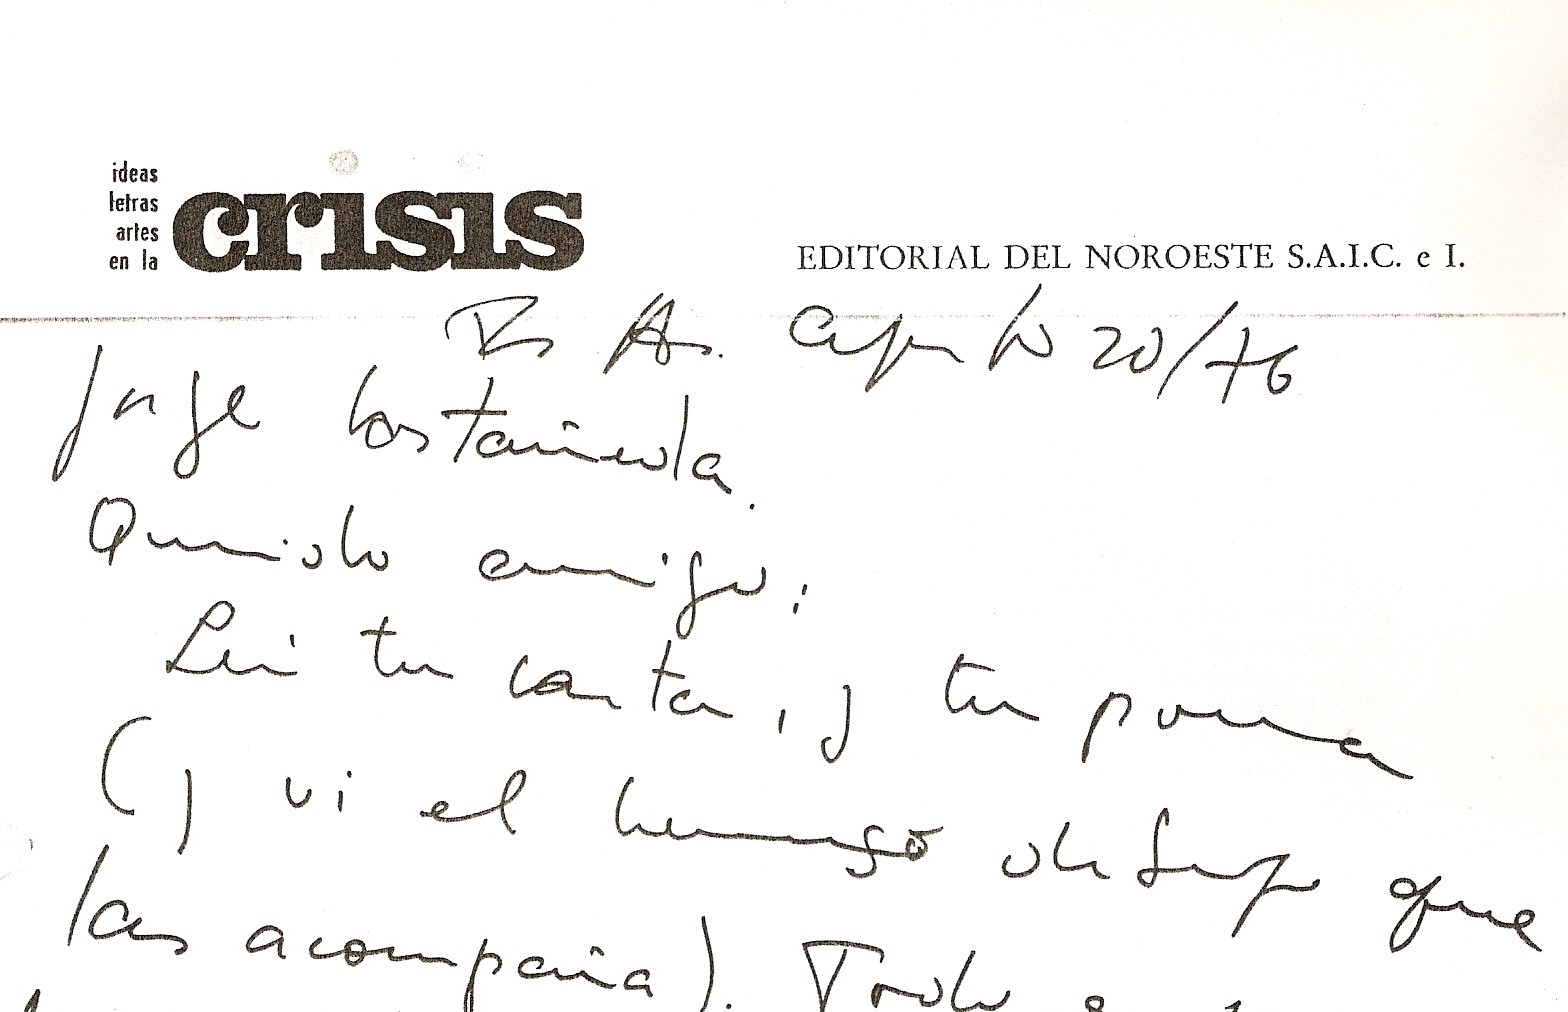 ideas
letras
artes
en la
crisis
EDITORIAL DEL NOROESTE S.A.I.C. e I.
Bs As. Agosto 20/76
Jorge Castañeda.
Querido amigo:
Leí tu carta, y tu poema
(y vi el hermoso dibujo que
las acompaña). Todo